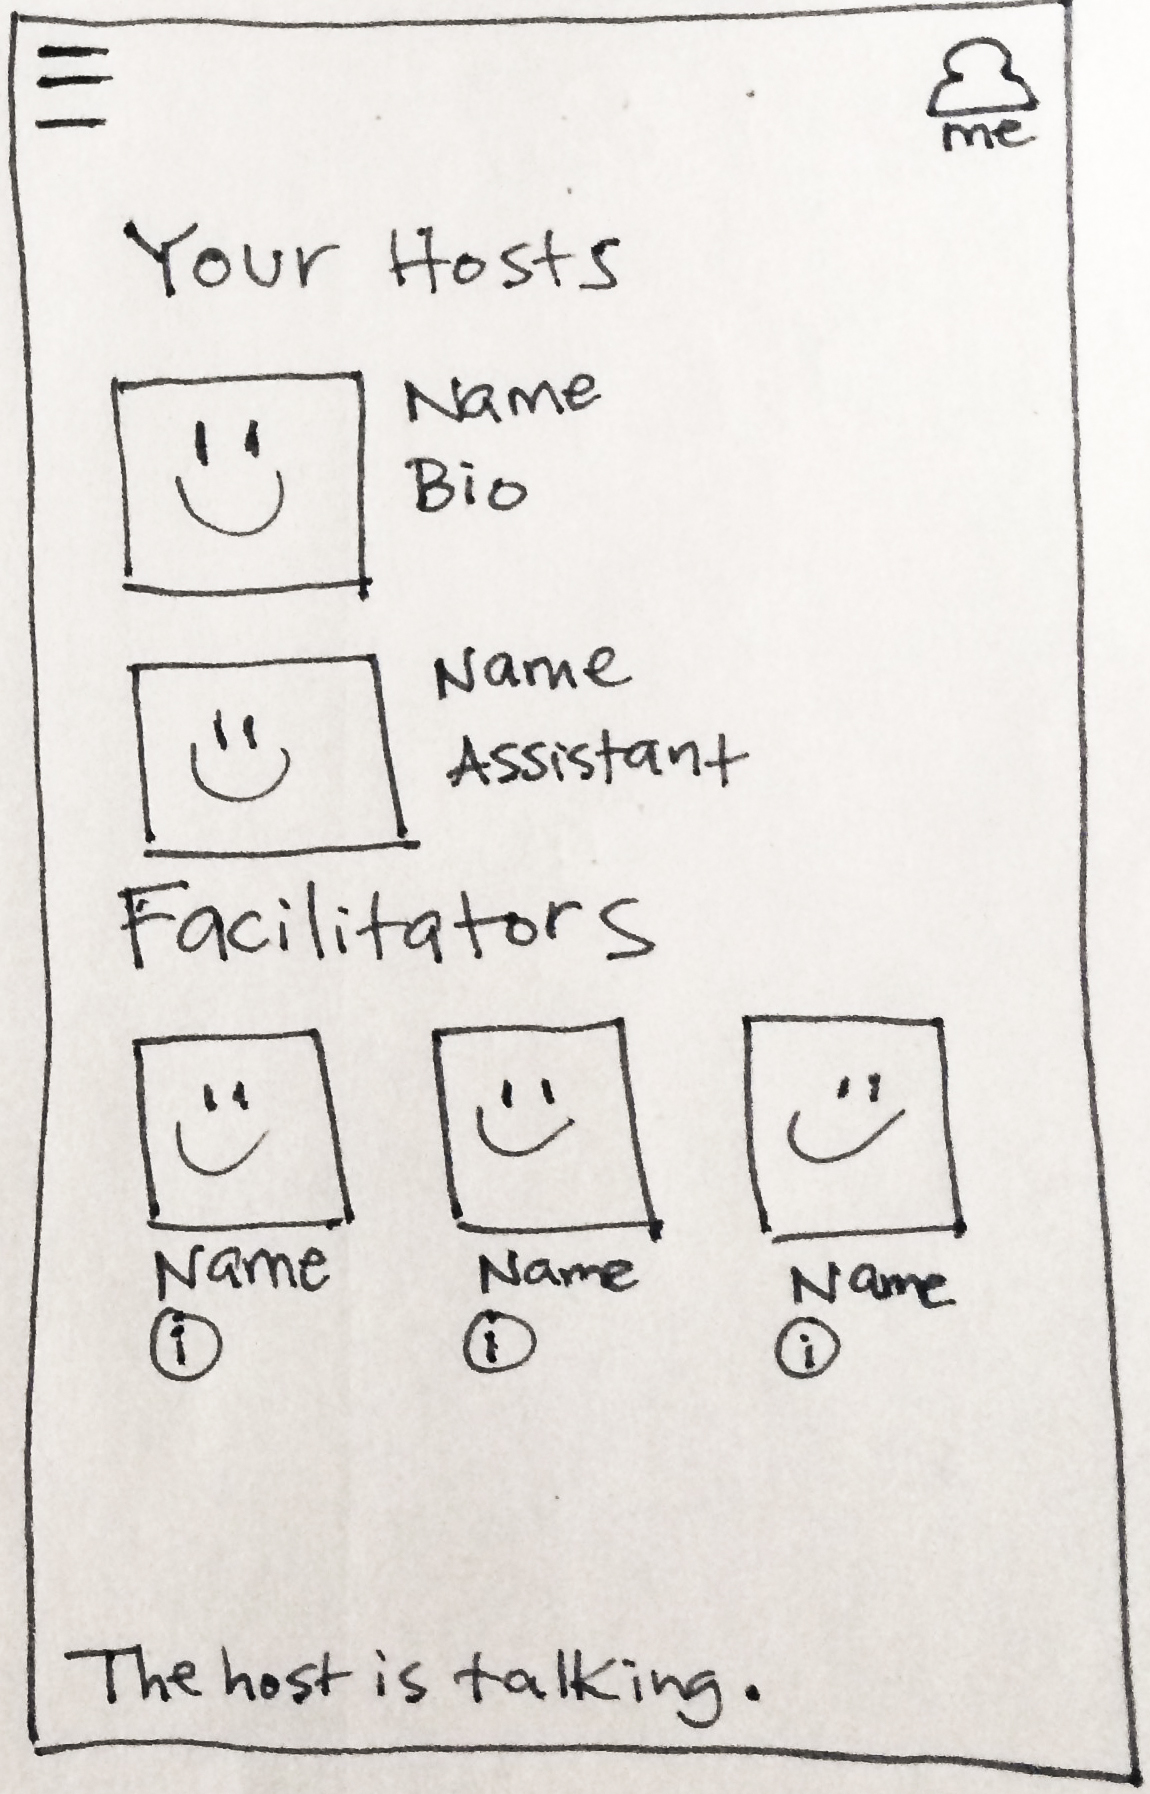 me
Your Hosts
Name
Bio
Name
Assistant
Facilitators
Name Name Name
i i i
The host is talking.